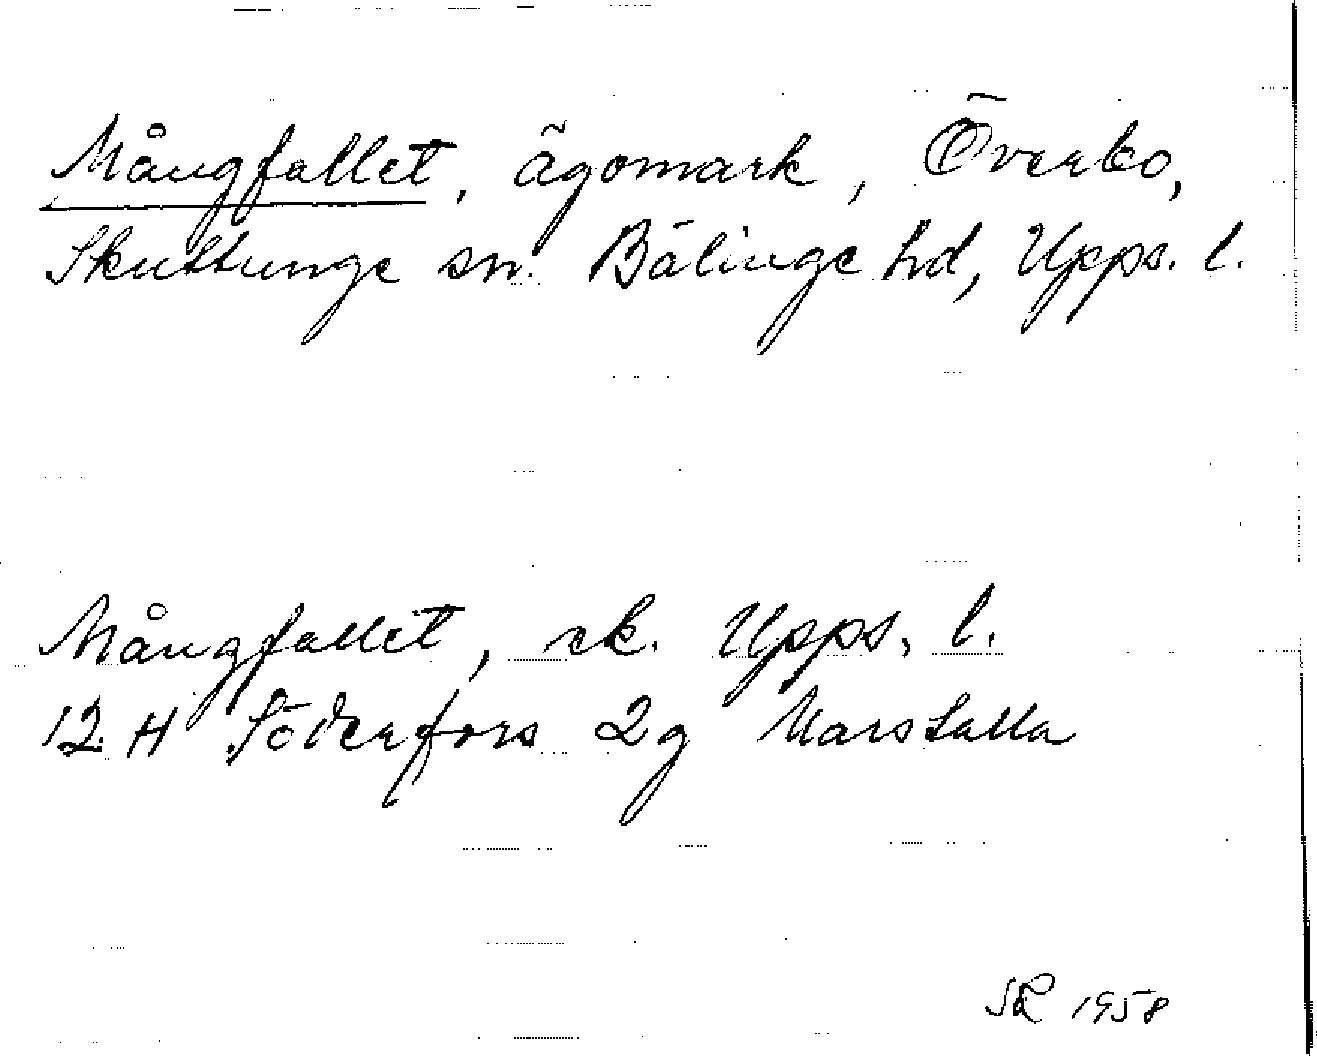 Mångfallet, ägomark, Överbo,
Skuttunge sn. Bälinge hd, Upps. l.
Mångfallet, ek. Upps. l.
12 H Söderfors 2g Marstalla
1958